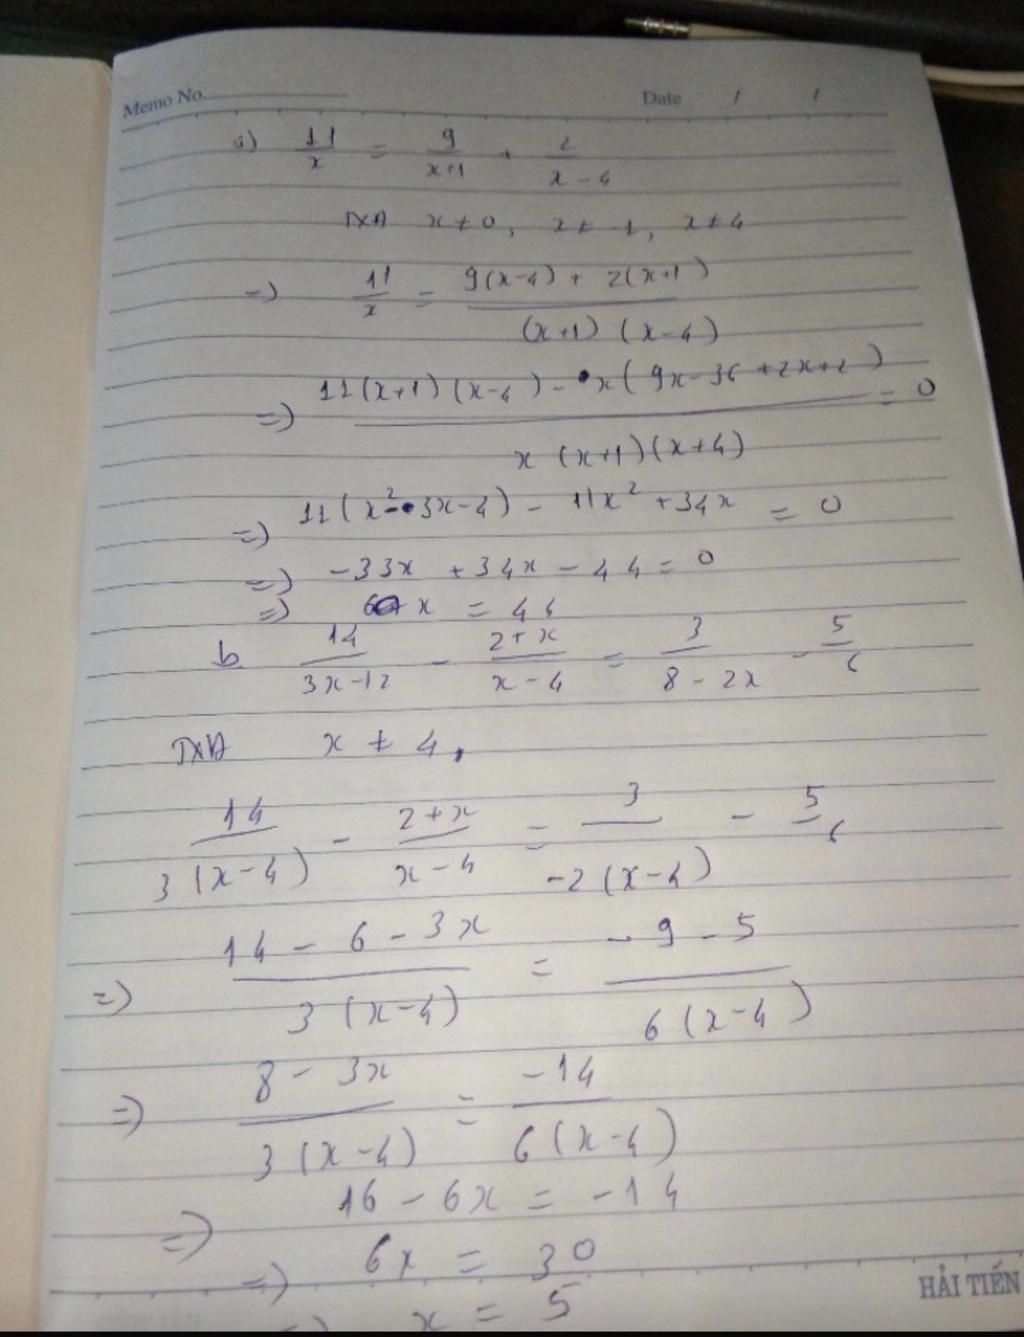 Memo No. Date / /
a) 11/x = 9/(x+1) + 2/(x-4)
TXĐ x ≠ 0, x ≠ -1, x ≠ 4
=) 11/x = (9(x-4) + 2(x+1))/((x+1)(x-4))
=) (11(x+1)(x-4) - x(9x-36+2x+2))/(x(x+1)(x+4)) = 0
=) 11(x²-3x-4) - 11x² + 34x = 0
=) -33x + 34x - 44 = 0
=) x = 44
b 14/(3x-12) - (2+x)/(x-4) = 3/(8-2x) - 5/6
TXĐ x ≠ 4,
14/(3(x-4)) - (2+x)/(x-4) = 3/(-2(x-4)) - 5/6
=) (14-6-3x)/(3(x-4)) = (-9-5)/(6(x-4))
=) (8-3x)/(3(x-4)) = -14/(6(x-4))
=) 16 - 6x = -14
=) 6x = 30
=) x = 5
HẢI TIẾN